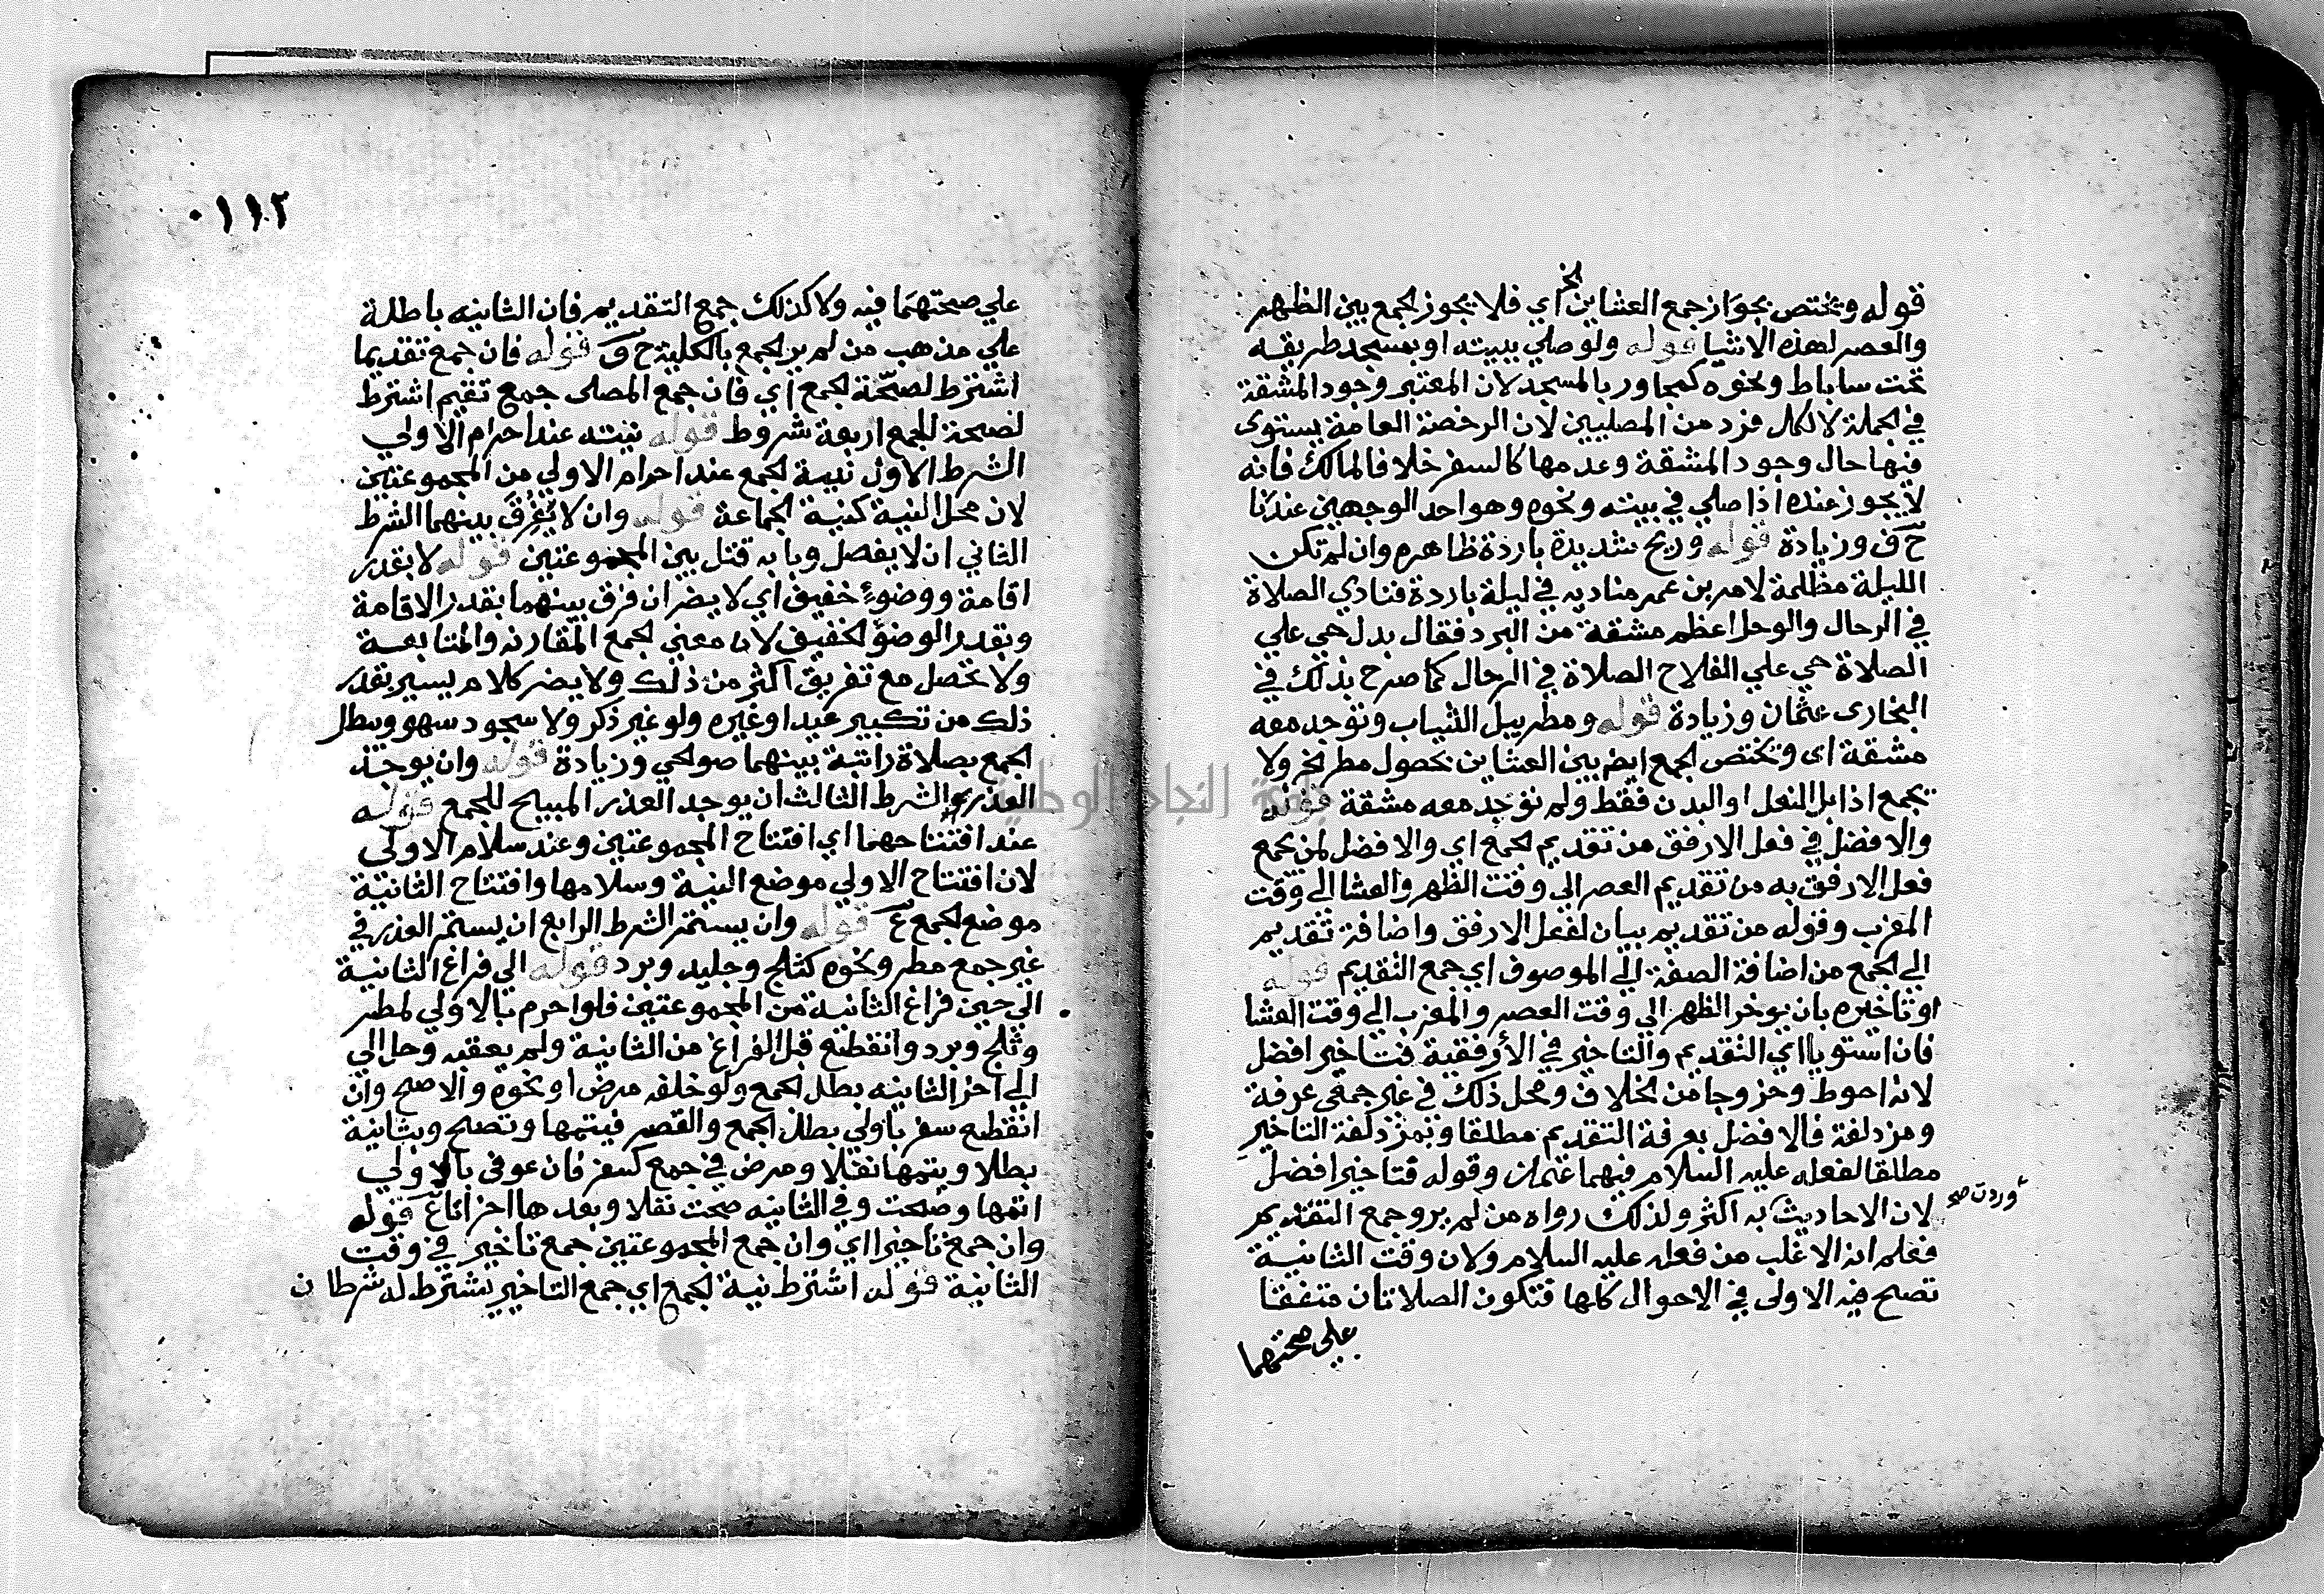 قوله ويختص بجواز جمع العشاين الخ اي فلا يجوز الجمع بين الظهر
والعصر لهذه الاشيا قوله ولو صلي ببيته او بمسجد طريقه
تحت ساباط ونحوه كمجاور بالمسجد لان المعتبر وجود المشقة
في الجملة لا لكل فرد من المصليين لان الرخصة العامة يستوى
فيها حال وجود المشقة وعدمها كالسفر خلافا لمالك فانه
لا يجوز عنده اذا صلي في بيته ونحوه وهو احد الوجهين عندنا
ح ف وزيادة قوله وريح شديدة باردة ظاهره وان لم تكن
الليلة مظلمة لامر بن عمر مناديه في ليلة باردة فنادي الصلاة
في الرحال والوحل اعظم مشقة من البرد فقال بدل حي علي
الصلاة حي علي الفلاح الصلاة في الرحال كما صرح بذلك في
البخارى عثمان وزيادة قوله ومطر يبل الثياب وتوجد معه
مشقة اى ويختص الجمع ايضا بين العشاين بحصول مطر الخ ولا
يجمع اذا بل النعل او البدن فقط ولم توجد معه مشقة قوله
والافضل في فعل الارفق من تقديم الجمع اي والافضل لمن يجمع
فعل الارفق به من تقديم العصر الي وقت الظهر والعشا الي وقت
المغرب وقوله من تقديم بيان لفعل الارفق واضافة تقديم
الي الجمع من اضافة الصفة الي الموصوف اي جمع التقديم قوله
او تاخيره بان يوخر الظهر الي وقت العصر والمغرب الي وقت العشا
فان استويا اي التقديم والتاخير في الأرفقية فتاخير افضل
لانه احوط وخروجا من الخلاف ومحل ذلك في غير جمعى عرفة
ومزدلفة فالافضل بعرفة التقديم مطلقا وبمزدلفة التاخير
مطلقا لفعله عليه السلام فيهما عثمان وقوله فتاخير افضل
لان الاحاديث به اكثر ولذلك رواه من لم يرو جمع التقديم
وردت صح
فعلم انه الاغلب من فعله عليه السلام ولان وقت الثانية
تصح فيه الاولى في الاحوال كلها فتكون الصلاتان متفقا
علي صحتهما
١١٢
علي صحتهما فيه ولا كذلك جمع التقديم فان الثانيه باطلة
علي مذهب من لم ير الجمع بالكلية ح ف قوله فان جمع تقديما
اشترط لصحّة الجمع اي فان جمع المصلى جمع تقديم اشترط
لصحة للجمع اربعة شروط قوله نيته عند احرام الاولي
الشرط الاول نية الجمع عند احرام الاولي من المجموعتين
لان محل النية كنية الجماعة قوله وان لا يُفرِّق بينهما الشرط
الثاني ان لا يفصل وبابه قتل بين المجموعتين قوله لا بقدر
اقامة ووضوءٍ خفيف اي لا يضر ان فرق بينهما بقدر الاقامة
وبقدر الوضؤ الخفيف لان معني الجمع المقارنه والمتابعة
ولا تحصل مع تفريق اكثر من ذلك ولا يضر كلام يسير بقدر
ذلك من تكبير عيد او غيره ولو غير ذكر ولا سجود سهو ويبطل
الجمع بصلاة راتبة بينهما صوالحي وزيادة قوله وان يوجد
العذر الشرط الثالث ان يوجد العذر المبيح للجمع قوله
عند افتتاحهما اي افتتاح المجموعتين وعند سلام الاولى
لان افتتاح الاولي موضع النية وسلامها وافتتاح الثانية
موضع الجمع ع قوله وان يستمر الشرط الرابع ان يستمر العذر في
غير جمع مطر ونحوه كثلج وجليد وبرد قوله الي فراغ الثانية
الي حين فراغ الثانية من المجموعتين فلو احرم بالاولي لمطر
وثلج وبرد وانقطع قبل الفراغ من الثانية ولم يعقبه وحل الي
الي اخر الثانيه بطل الجمع ولو خلفه مرض او نحوه والاصح وان
انقطع سفر باولي بطل الجمع والقصر فيتمها وتصح وبثانية
بطلا ويتمها نفلا ومرض في جمع كسفر فان عوفى بالاولي
اتمها وصحت وفي الثانيه صحت نفلا وبعدها اجزاتا ع قوله
وان جمع تاخيرا اي وان جمع المجموعتين جمع تاخير في وقت
الثانية قوله اشترط نية الجمع اي جمع التاخير يشترط له شرطان
جامعة النجاح الوطنية